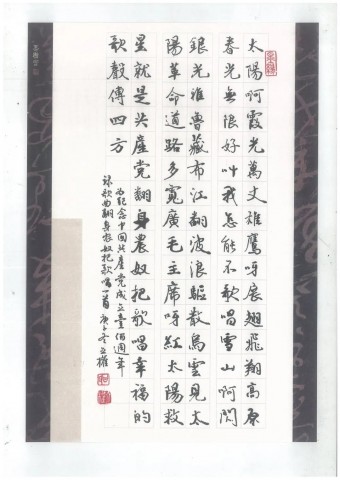 太陽啊霞光萬丈雄鷹呀展翅飛翔高原
春光無限好叫我怎能不歌唱雪山啊閃
銀光雅魯藏布江翻波浪驅散烏雲見太
陽革命道路多寬廣毛主席呀紅太陽救
星就是共產党翻身農奴把歌唱幸福的
歌聲傳四方
为紀念中國共產党成立壹佰週年
錄歌曲翻身农奴把歌唱一首庚子冬立權